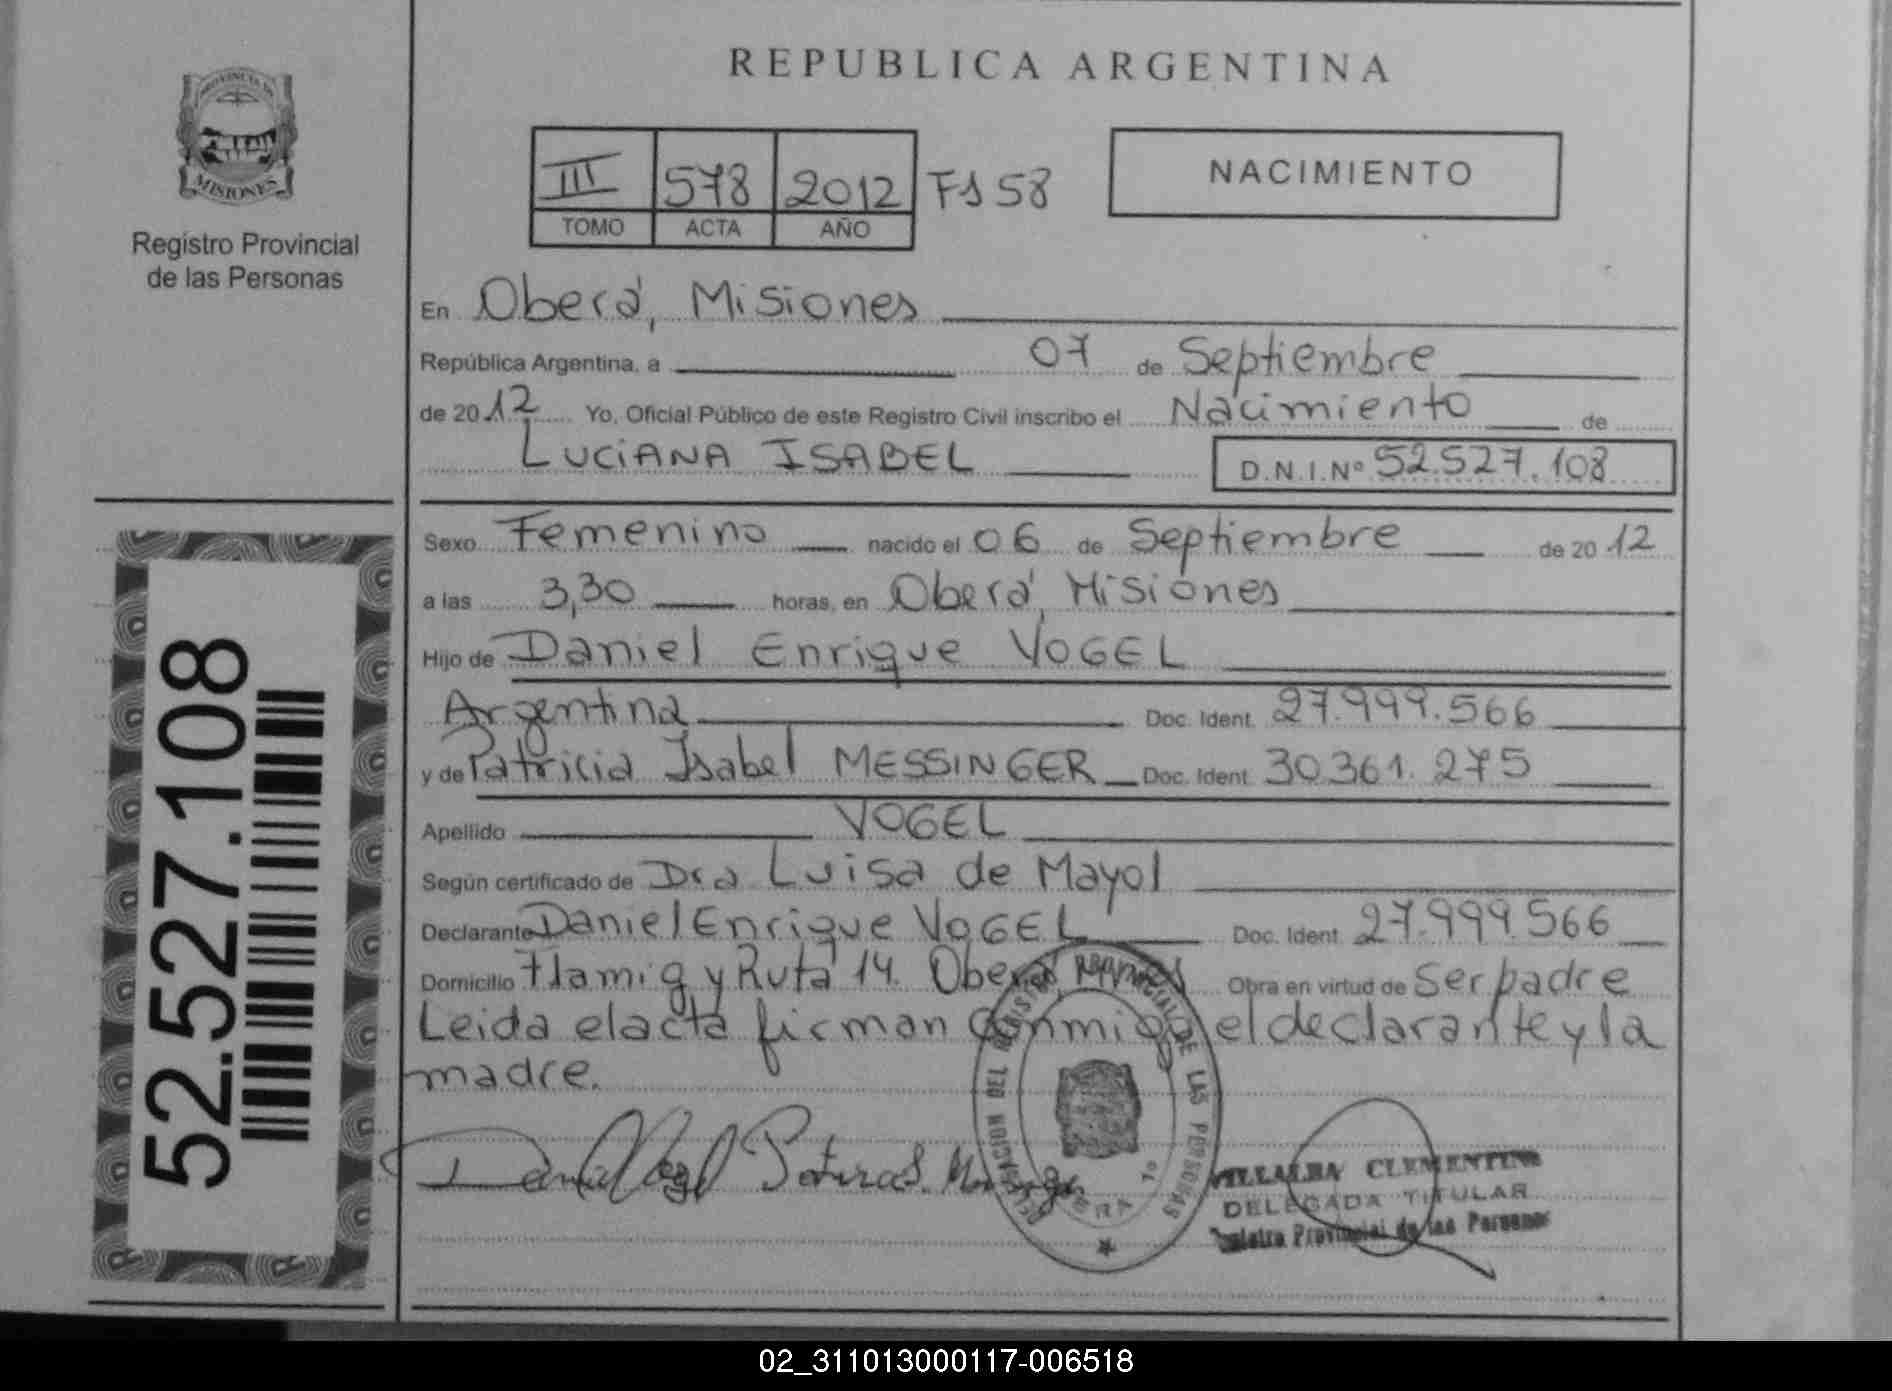 REPUBLICA ARGENTINA
PROVINCIA DE
MISIONES
Registro Provincial
de las Personas
III 578 2012 FS 58
TOMO ACTA AÑO
NACIMIENTO
En Oberá, Misiones
República Argentina, a 07 de Septiembre
de 2012 Yo, Oficial Público de este Registro Civil inscribo el Nacimiento de
LUCIANA ISABEL D.N.I.Nº 52.527.108
Sexo Femenino nacido el 06 de Septiembre de 2012
a las 3,30 horas, en Oberá, Misiones
Hijo de Daniel Enrique VOGEL
Argentina Doc. Ident. 27.999.566
y de Patricia Isabel MESSINGER Doc. Ident. 30.361.275
Apellido VOGEL
Según certificado de Dra Luisa de Mayol
Declarante Daniel Enrique VOGEL Doc. Ident. 27.999.566
Domicilio y Ruta 14. Oberá, Obra en virtud de Ser padre
Leida el acta firman conmigo el declarante y la
madre.
Daniel Vogel
DELEGACION DEL REGISTRO PROVINCIAL DE LAS PERSONAS
VILLALBA CLEMENTINA
DELEGADA TITULAR
Registro Provincial de las Personas
52.527.108
02_311013000117-006518